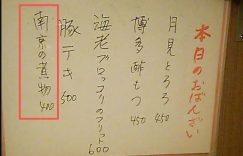 本日のおばんざい
月見とろろ 450
博多酢もつ 450
海老ブロッコリのフリット 600
豚テキ 500
南京の煮物 400